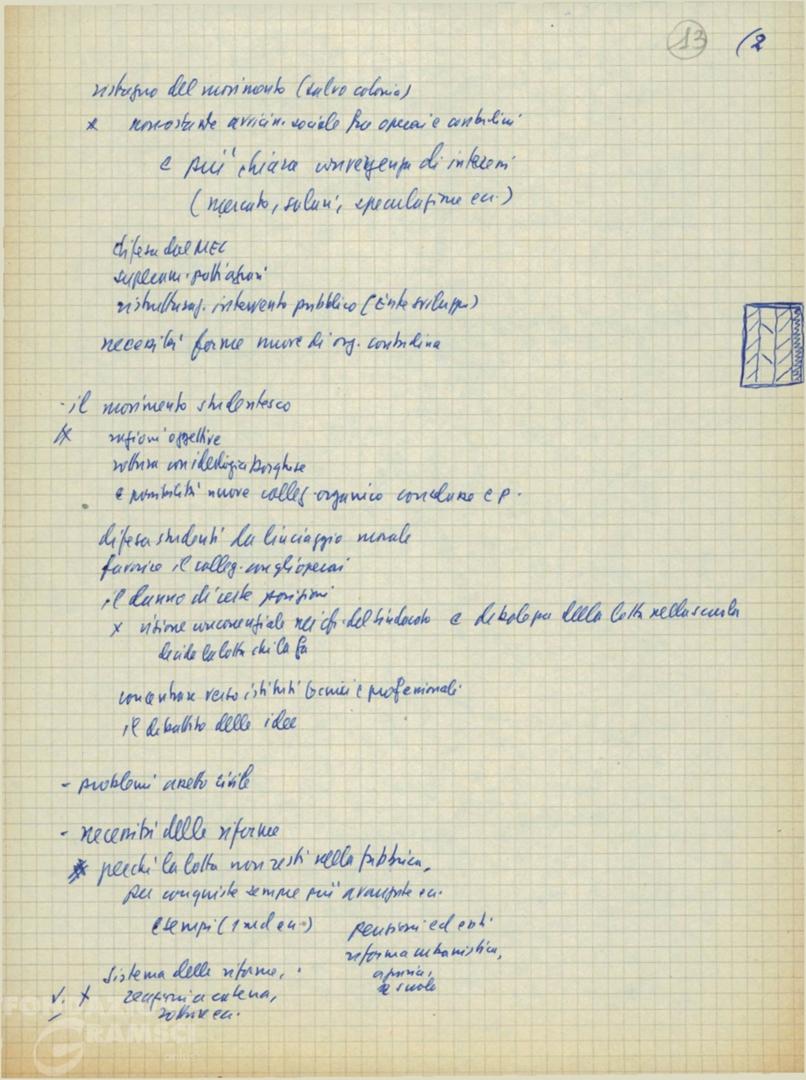 13 (2
ristagno del movimento (salvo colonia)
x nonostante avvicin. sociale fra operai e contadini
e più chiara convergenza di interessi
(mercato, salari, speculazione ecc.)
difesa dal MEC
superam. patti agrari
ristrutturaz. intervento pubblico (Ente sviluppo)
necessità forme nuove di org. contadina
- il movimento studentesco
x ragioni oggettive
rottura con ideologia borghese
e possibilità nuove colleg. organico con classe op.
difesa studenti da linciaggio morale
favorire il colleg. con gli operai
il danno di certe posizioni
x visione concorrenziale nei cfr. del sindacato e debolezza della lotta nella scuola
decide la lotta chi la fa
concentrare verso istituti tecnici e professionali
il dibattito delle idee
- problemi assetto civile
- necessità delle riforme
x perché la lotta non resti nella fabbrica,
per conquiste sempre più avanzate ecc.
esempi (1 ecc.) pensioni ed enti
riforma urbanistica,
agraria,
scuola
Sistema delle riforme,
v. x reazioni a catena,
rotture ecc.
FONDAZIONE
GRAMSCI